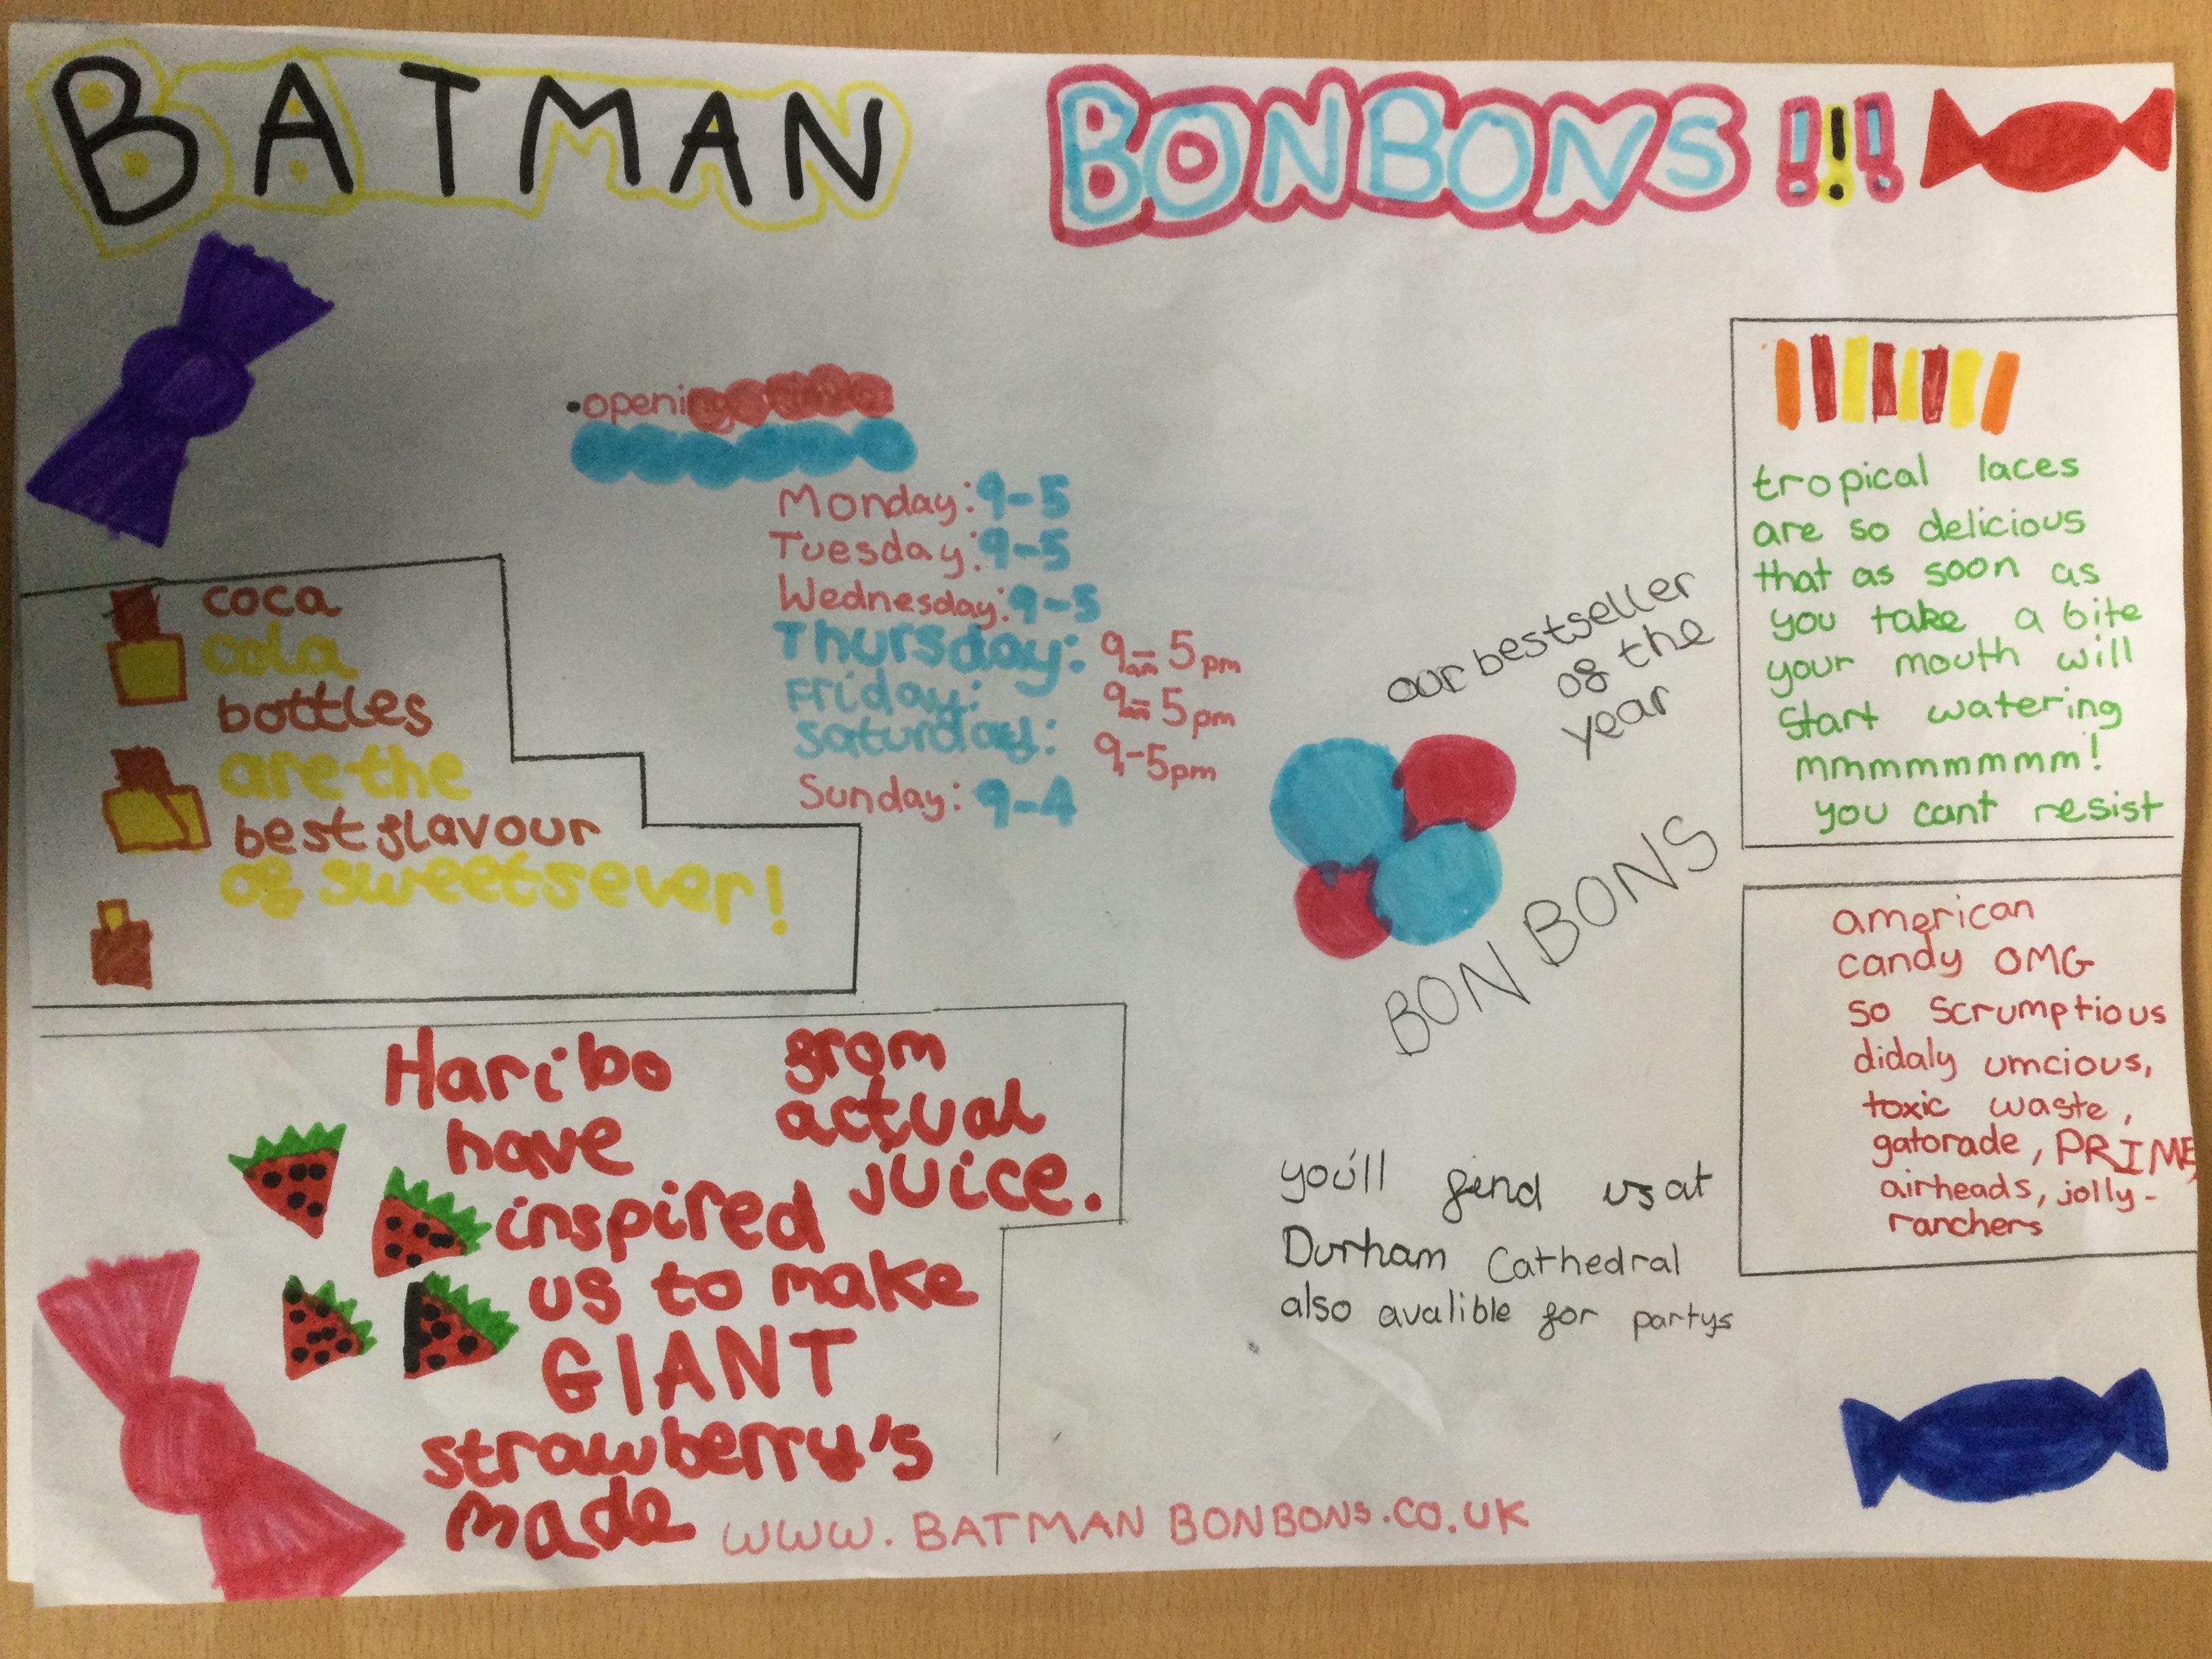 BATMAN BONBONS !!!
•opening
Monday: 9-5
Tuesday: 9-5
Wednesday: 9-5
Thursday: 9am-5pm
Friday: 9am-5pm
Saturday: 9-5pm
Sunday: 9-4
coca
cola
bottles
are the
best flavour
of sweets ever!
our bestseller
of the
year
BON BONS
tropical laces
are so delicious
that as soon as
you take a bite
your mouth will
start watering
mmmmmmmm!
you cant resist
american
candy OMG
so scrumptious
didaly umcious,
toxic waste,
gatorade, PRIME,
airheads, jolly-
ranchers
Haribo
have
inspired
us to make
GIANT
strawberry's
made
from
actual
juice.
you'll find us at
Durham Cathedral
also avalible for partys
www.BATMANBONBONS.CO.UK